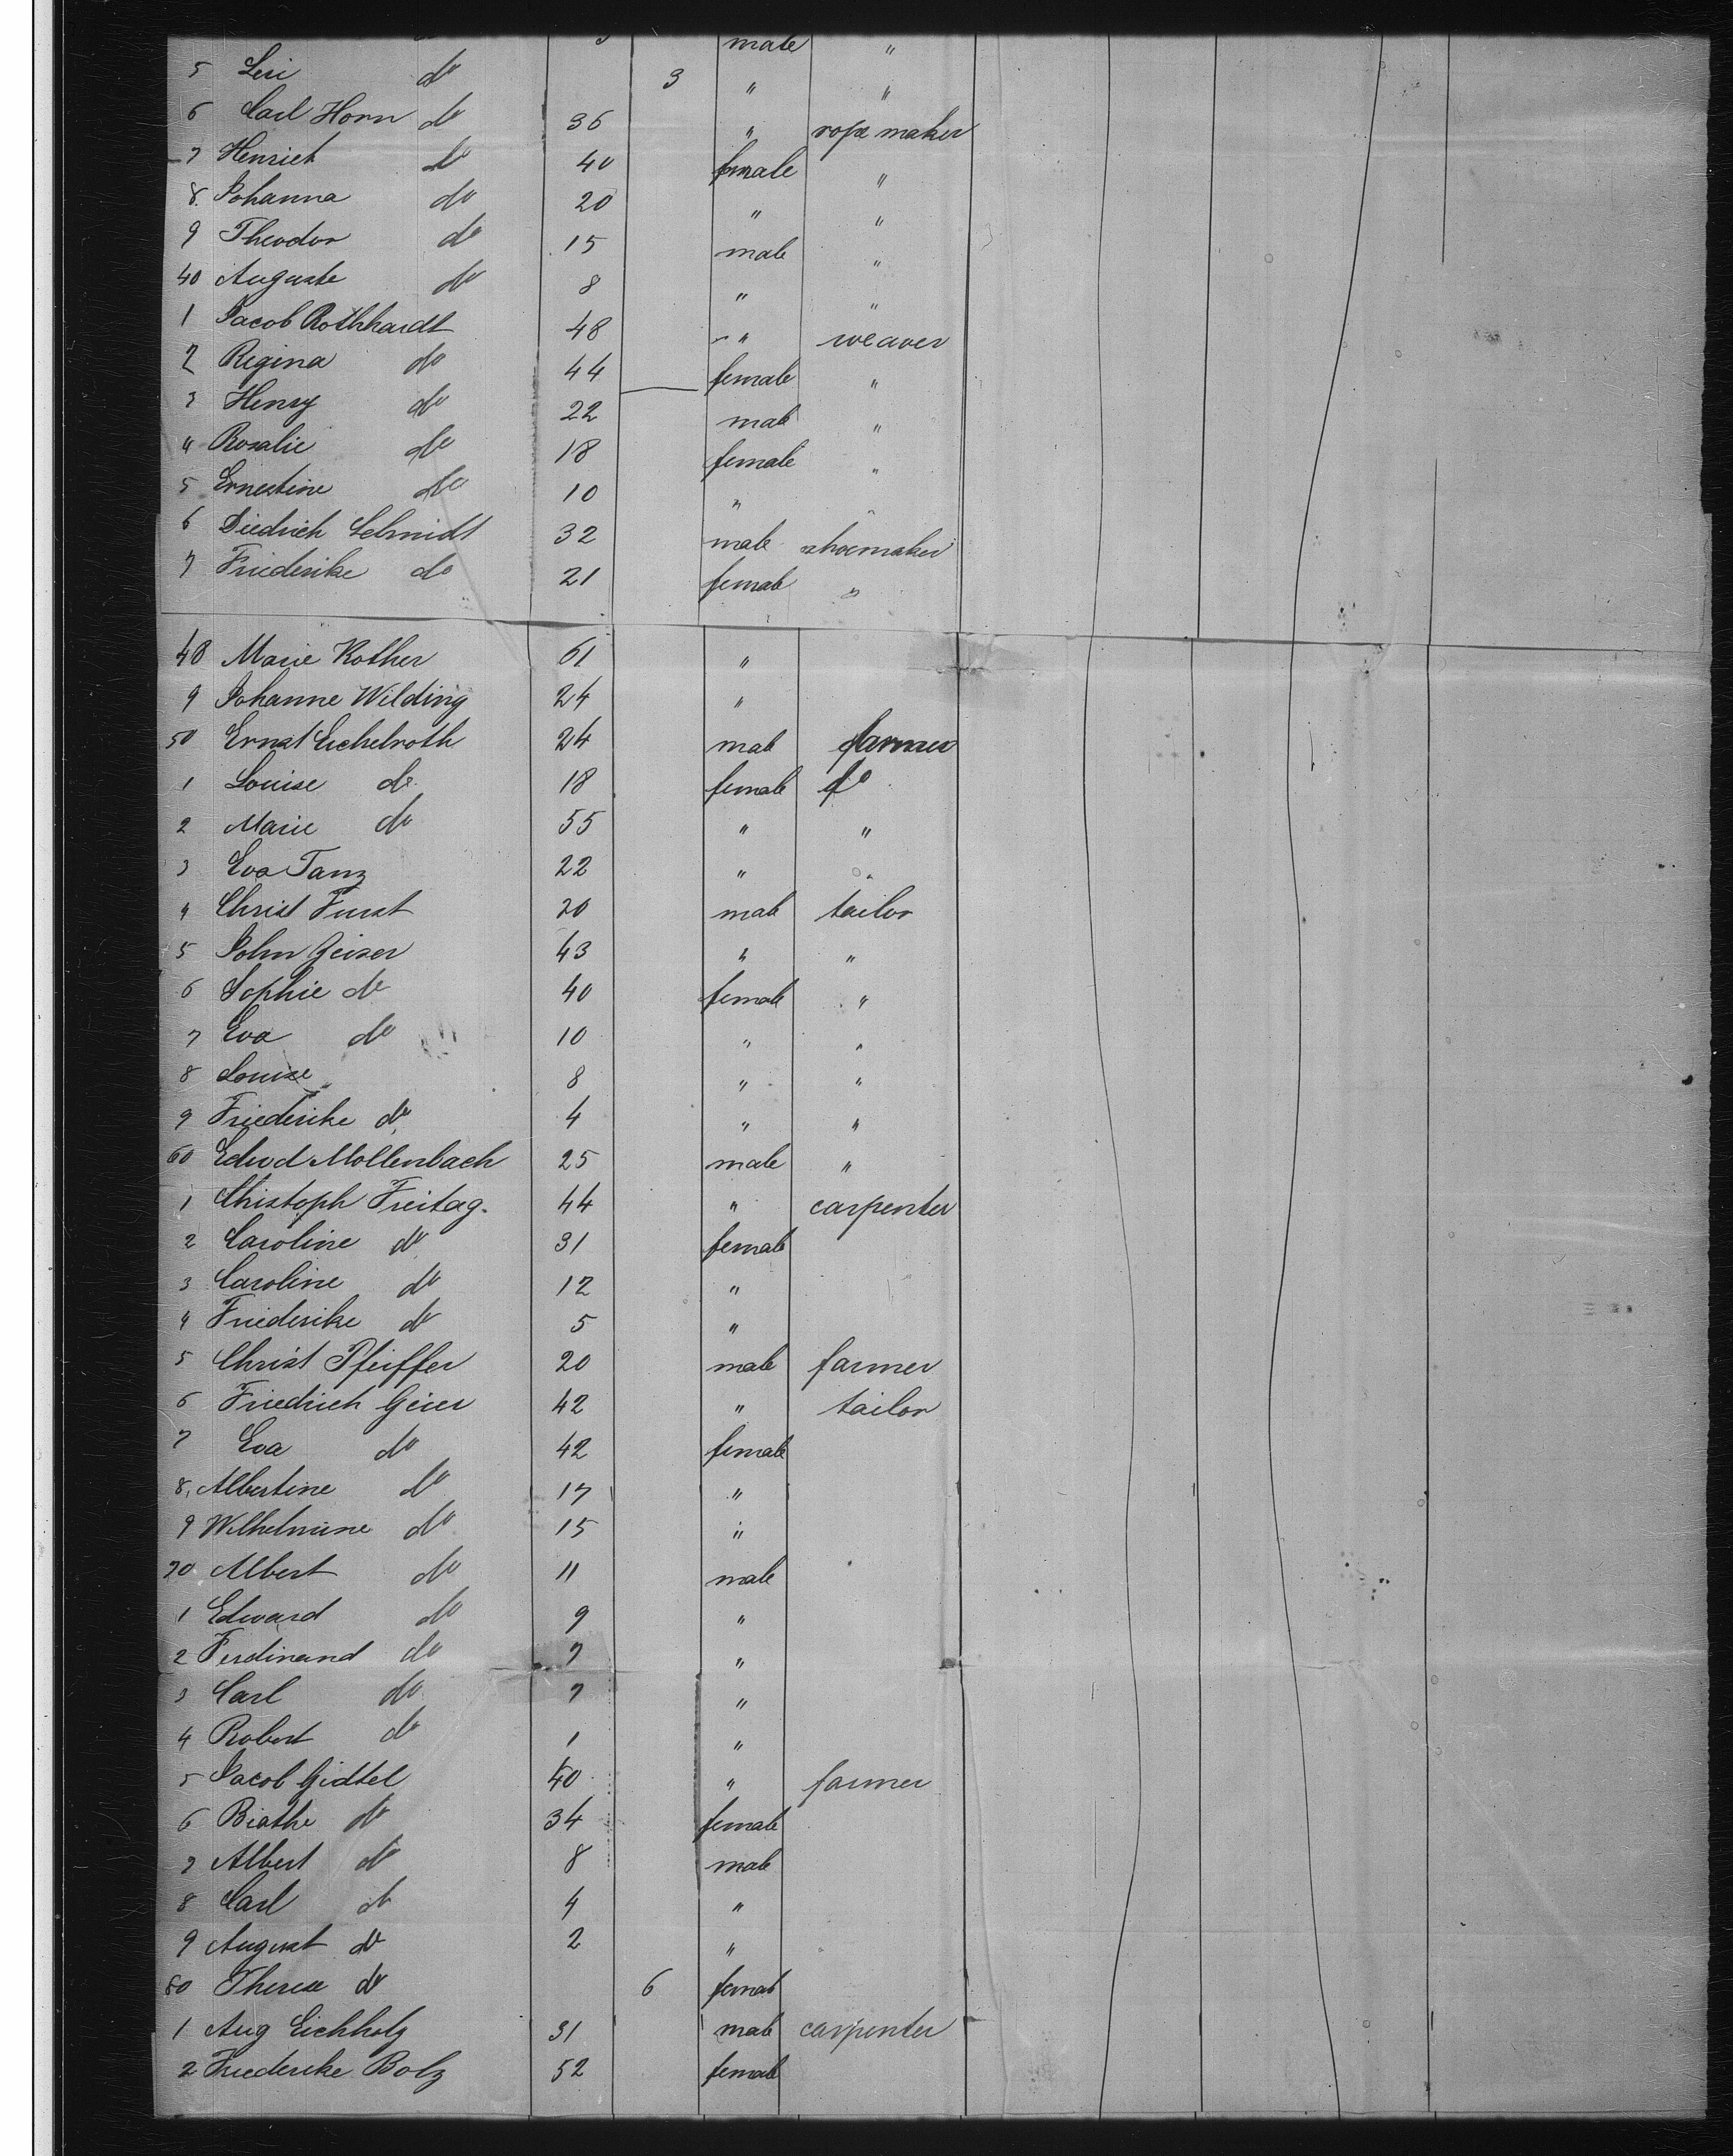 male "
5 Leri do 3 " "
6 Carl Horn do 36 " rope maker
7 Henriet do 40 female "
8. Johanna do 20 " "
9 Theodor do 15 male "
40 Auguste do 8 " "
1 Jacob Rothhardt 48 " weaver
2 Regina do 44 female "
3 Henry do 22 male "
4 Rosalie do 18 female "
5 Ernestine do 10 " "
6 Diedrich Schmidt 32 male shoemaker
7 Friederike do 21 female "
48 Marie Kother 61 "
9 Johanne Wilding 24 "
50 Ernst Eichelroth 24 male farmer
1 Louise do 18 female do
2 Marie do 55 " "
3 Eva Tanz 22 " "
4 Christ Furst 20 male tailor
5 John Geiser 43 " "
6 Sophie do 40 female "
7 Eva do 10 " "
8 Louise " 8 " "
9 Friederike do 4 " "
60 Edwd Mollenbach 25 male "
1 Christoph Freitag. 44 " carpenter
2 Caroline do 31 female
3 Caroline do 12 "
4 Friederike do 5 "
5 Christ Pfeiffer 20 male farmer
6 Friedrich Geier 42 " tailor
7 Eva do 42 female
8. Albertine do 17 "
9 Wilhelmine do 15 "
70 Albert do 11 male
1 Edward do 9 "
2 Ferdinand do 7 "
3 Carl do 7 "
4 Robert do 1 "
5 Jacob Gidtel 40 " farmer
6 Biathe do 34 female
7 Albert do 8 male
8 Carl do 4 "
9 August do 2 "
80 Therese do 6 female
1 Aug Eichholz 31 male carpenter
2 Friederike Bolz 52 female